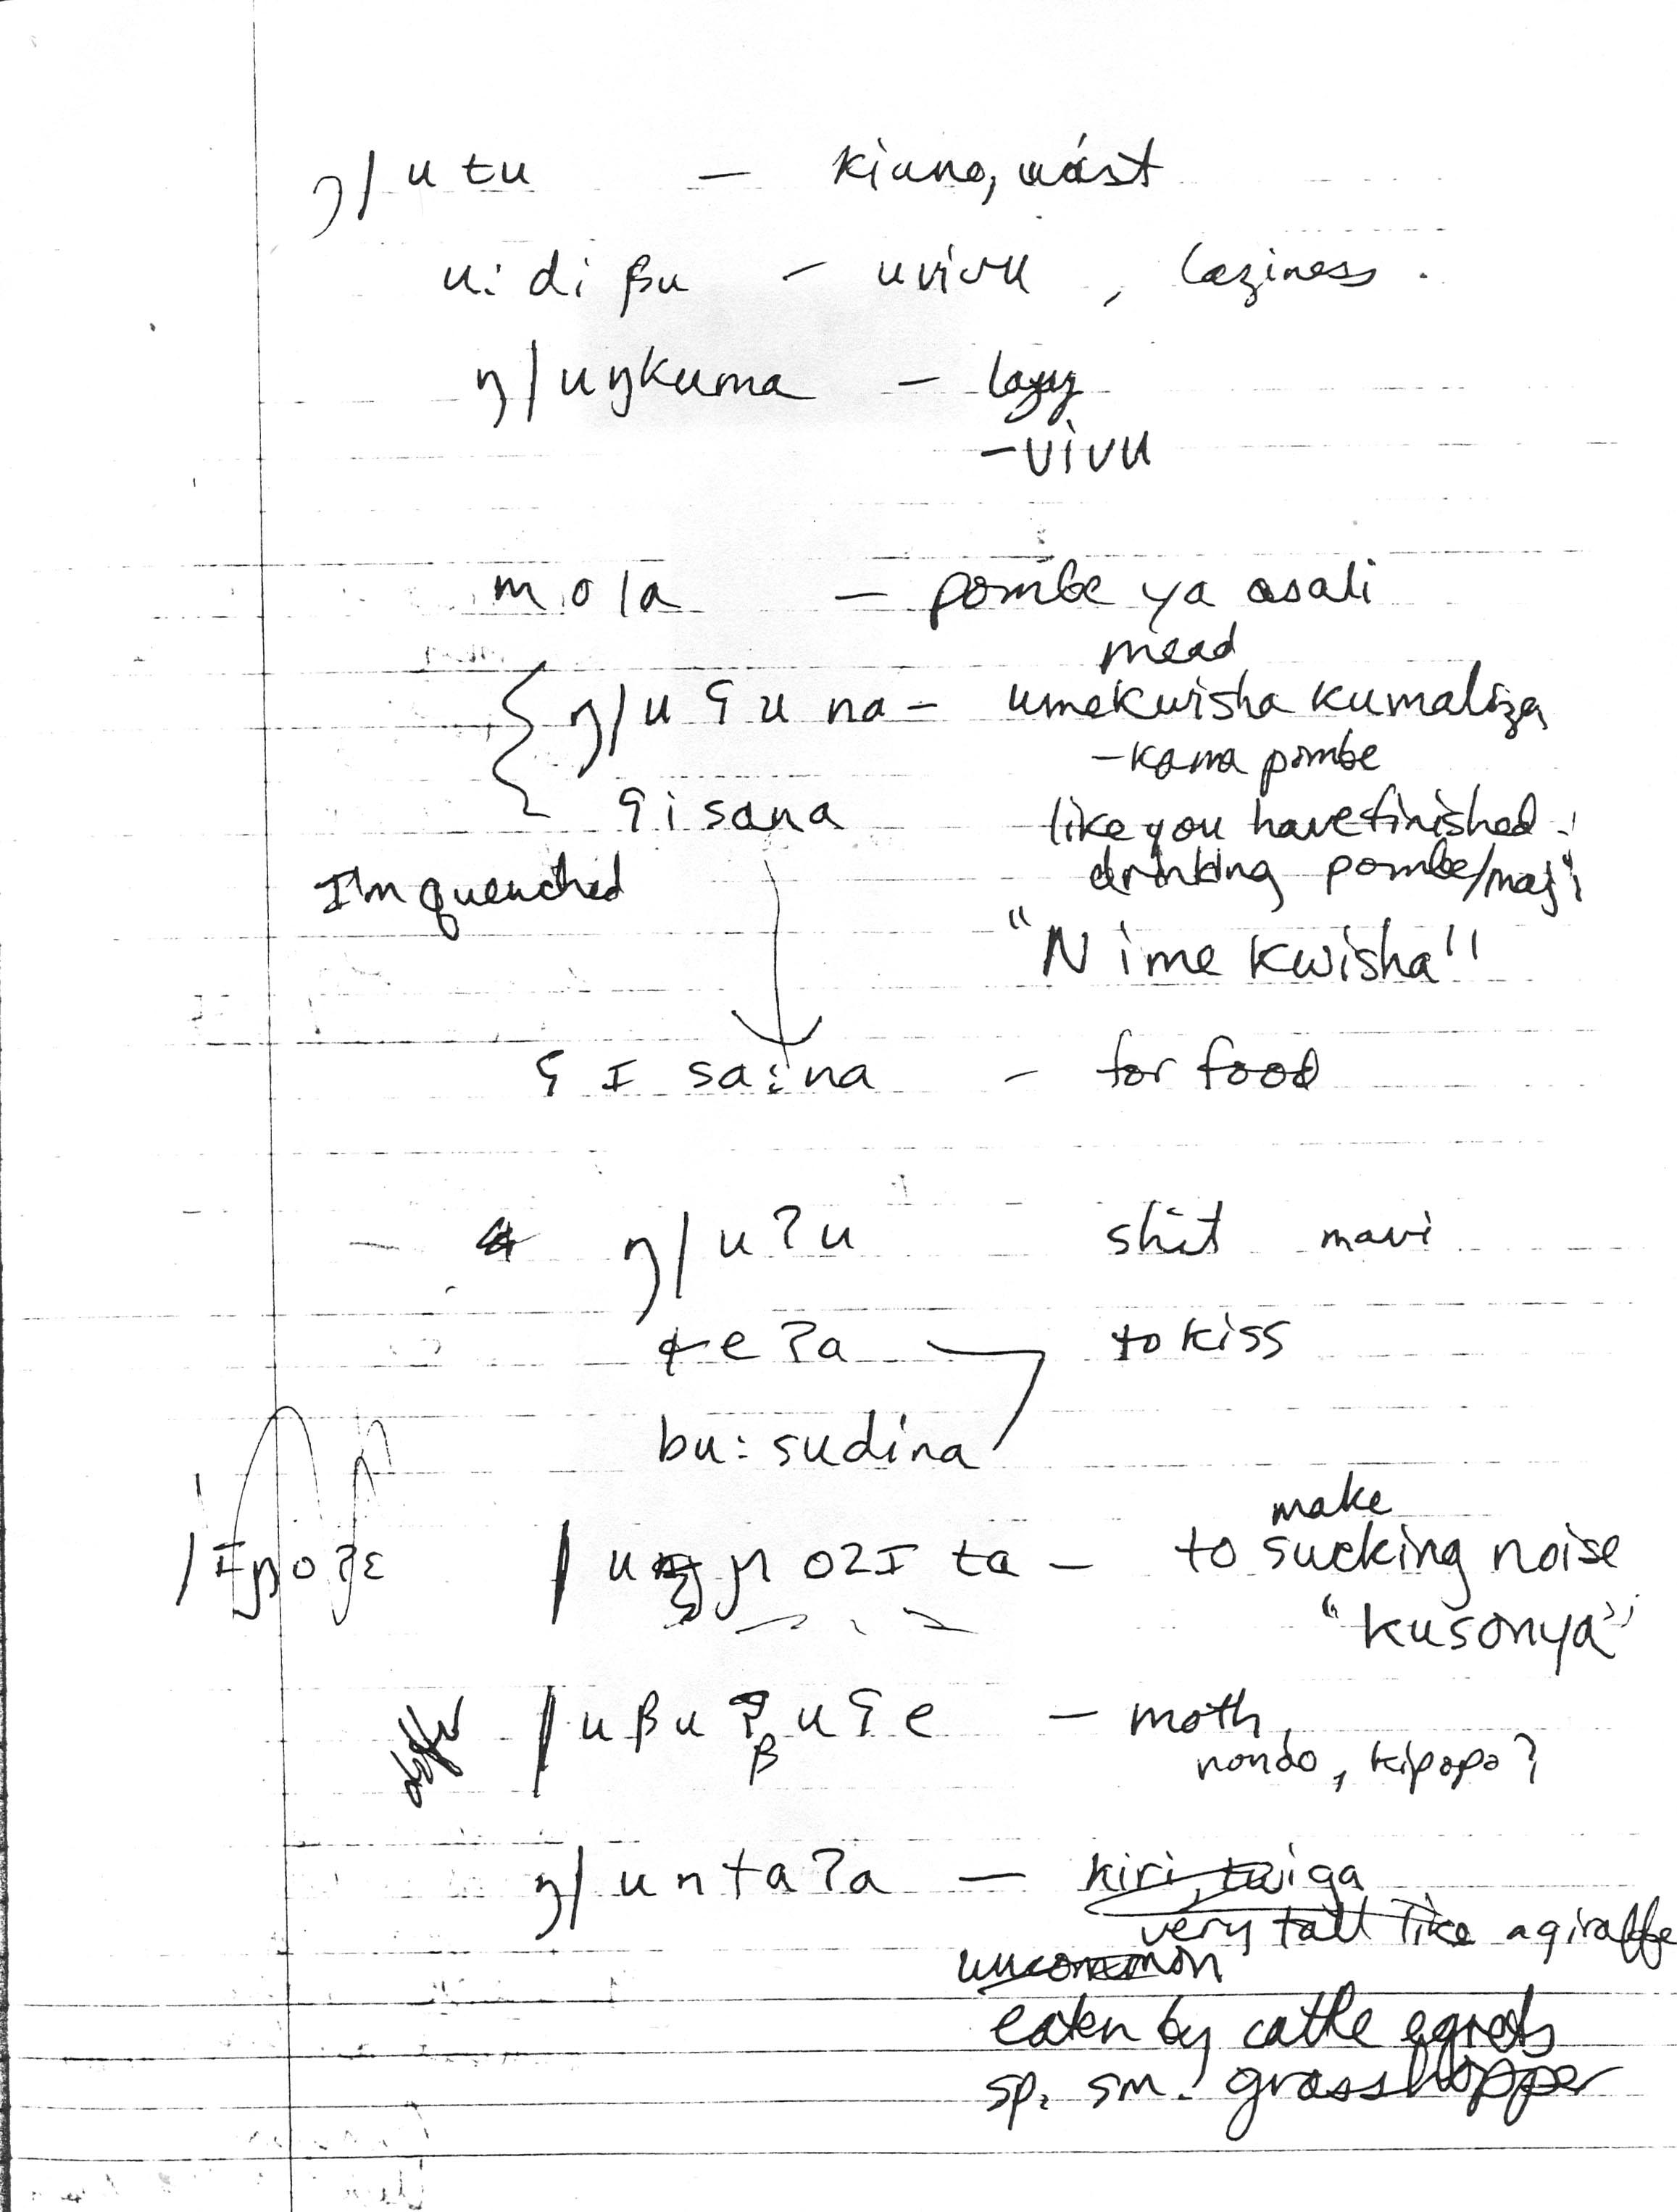 ŋ|utu — kiuno, waist
u:diβu – uvivu, laziness.
ŋ|uŋkuma – lazy
–vivu
mola — pombe ya asali
mead
ŋ|uʕuna – umekwisha kumaliza
– kama pombe
ʕisana like you have finished
I'm quenched drinking pombe/maji
"Nimekwisha"
ʕɪsa:na – for food
ŋ|uʔu shit mavi
ɬeʔa to kiss
bu:sudina
make
|ɪɲoʔɛ |uɲoʔɪta – to sucking noise
"kusonya"
|uβuβuʕe – moth,
nondo, kipopo?
ŋ|untaʔa — kiri, twiga
very tall like a giraffe
uncommon
eaten by cattle egrets
sp. sm. grasshopper